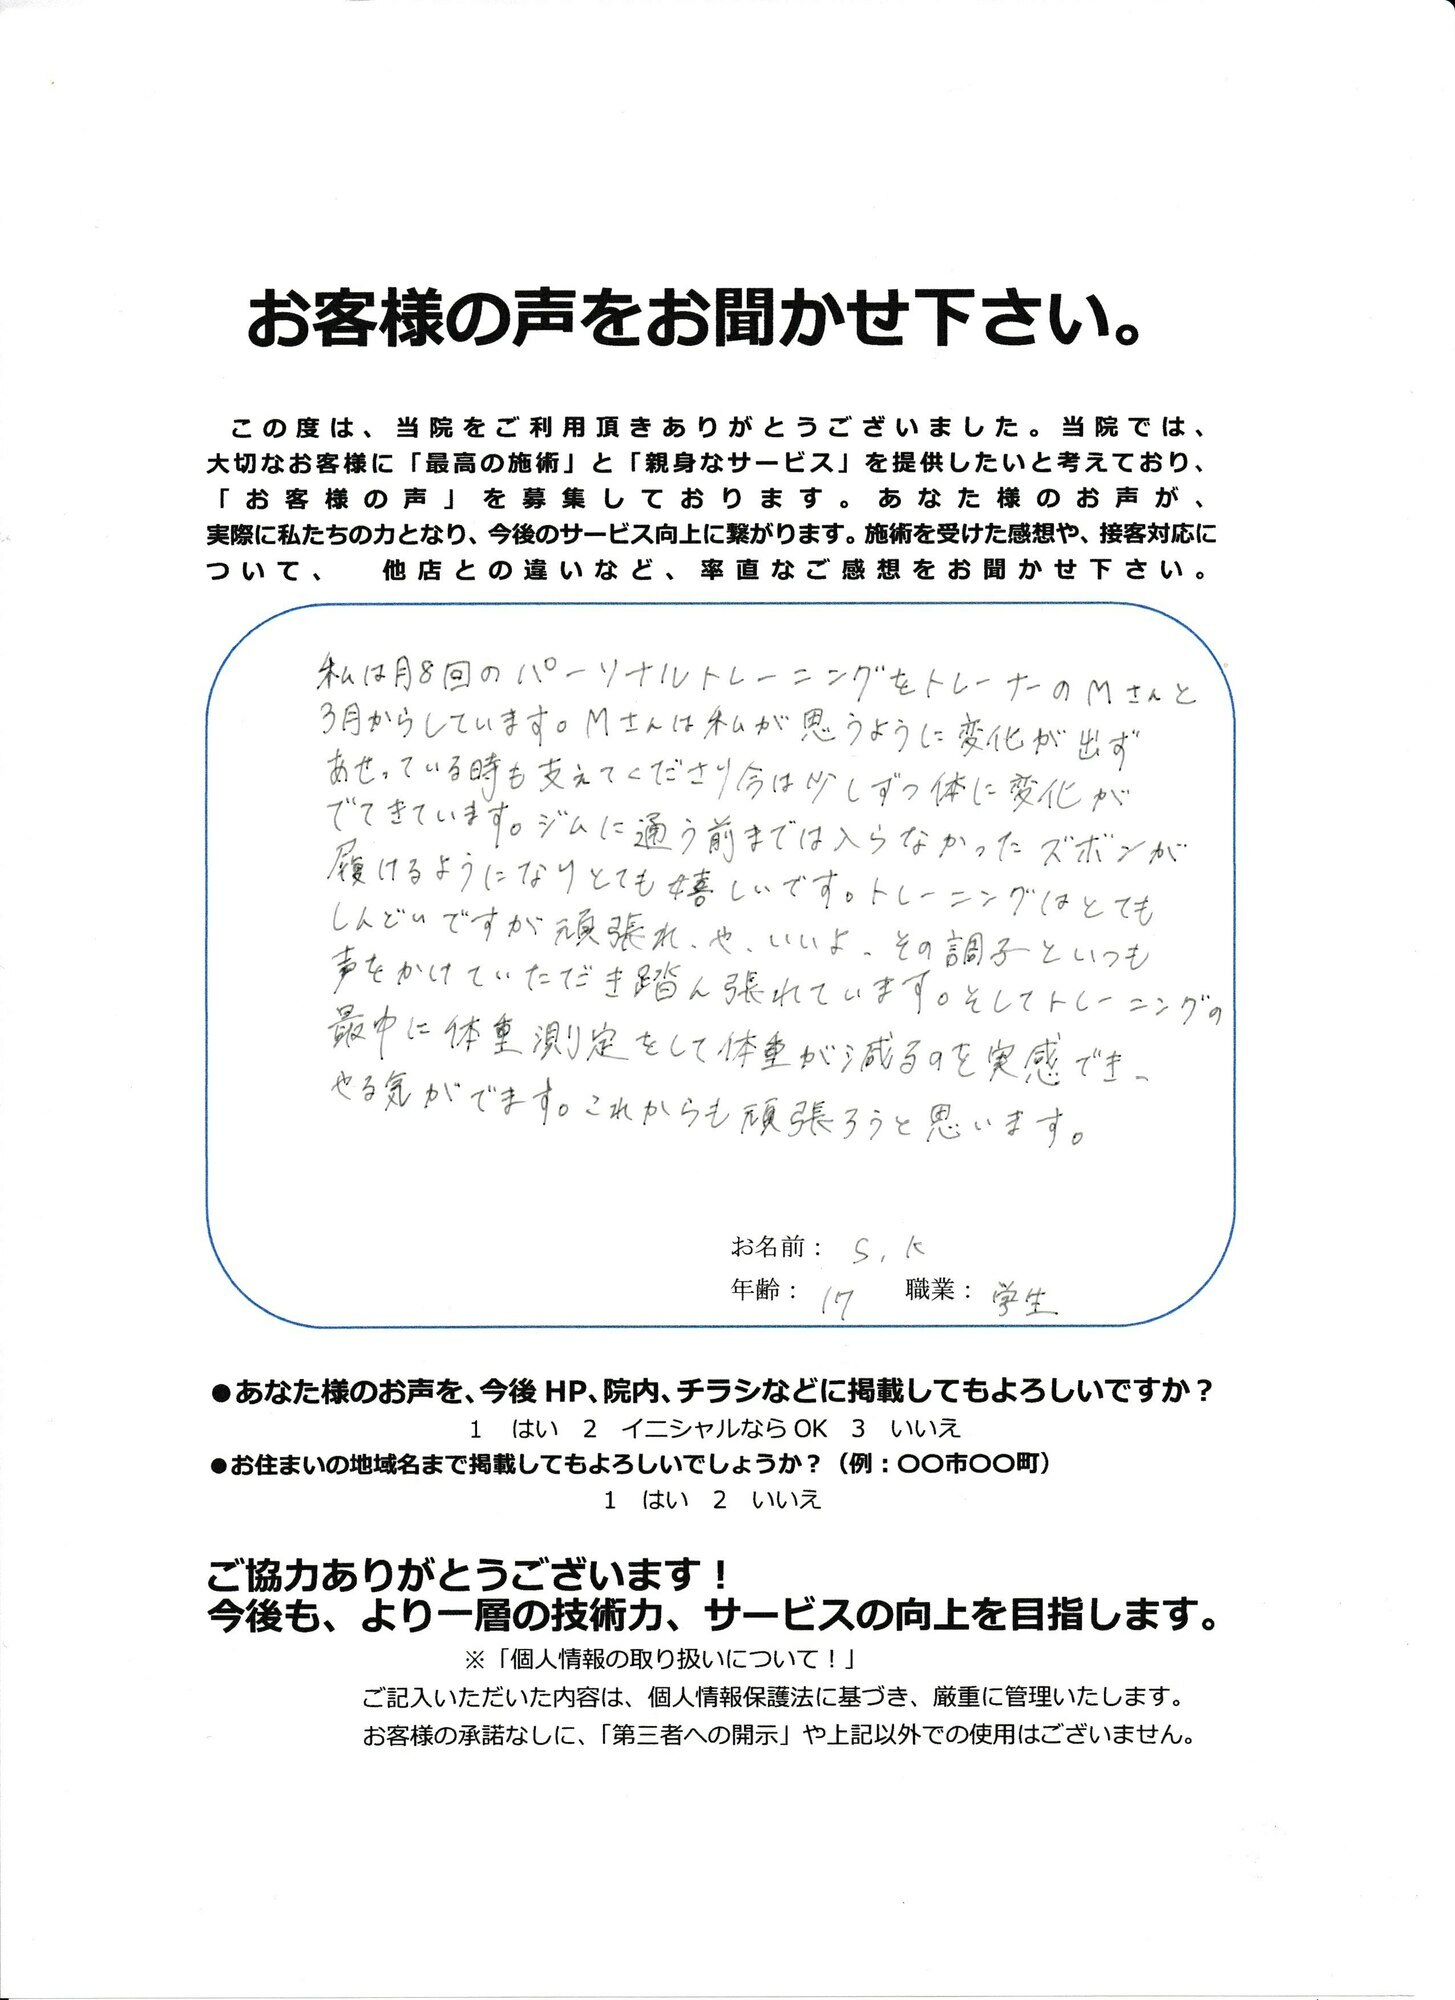 お客様の声をお聞かせ下さい。
この度は、当院をご利用頂きありがとうございました。当院では、
大切なお客様に「最高の施術」と「親身なサービス」を提供したいと考えており、
「お客様の声」を募集しております。あなた様のお声が、
実際に私たちの力となり、今後のサービス向上に繋がります。施術を受けた感想や、接客対応に
ついて、 他店との違いなど、率直なご感想をお聞かせ下さい。
私は月8回のパーソナルトレーニングをトレーナーのMさんと
3月からしています。Mさんは私が思うように変化が出ず
あせっている時も支えてくださり今は少しずつ体に変化が
でてきています。ジムに通う前までは入らなかったズボンが
履けるようになりとても嬉しいです。トレーニングはとても
しんどいですが頑張れ、や、いいよ、その調子といつも
声をかけていただき踏ん張れています。そしてトレーニングの
最中に体重測定をして体重が減るのを実感でき、
やる気がでます。これからも頑張ろうと思います。
お名前： S.K
年齢： 17 職業： 学生
●あなた様のお声を、今後 HP、院内、チラシなどに掲載してもよろしいですか？
1 はい 2 イニシャルなら OK 3 いいえ
●お住まいの地域名まで掲載してもよろしいでしょうか？（例：〇〇市〇〇町）
1 はい 2 いいえ
ご協力ありがとうございます！
今後も、より一層の技術力、サービスの向上を目指します。
※「個人情報の取り扱いについて！」
ご記入いただいた内容は、個人情報保護法に基づき、厳重に管理いたします。
お客様の承諾なしに、「第三者への開示」や上記以外での使用はございません。